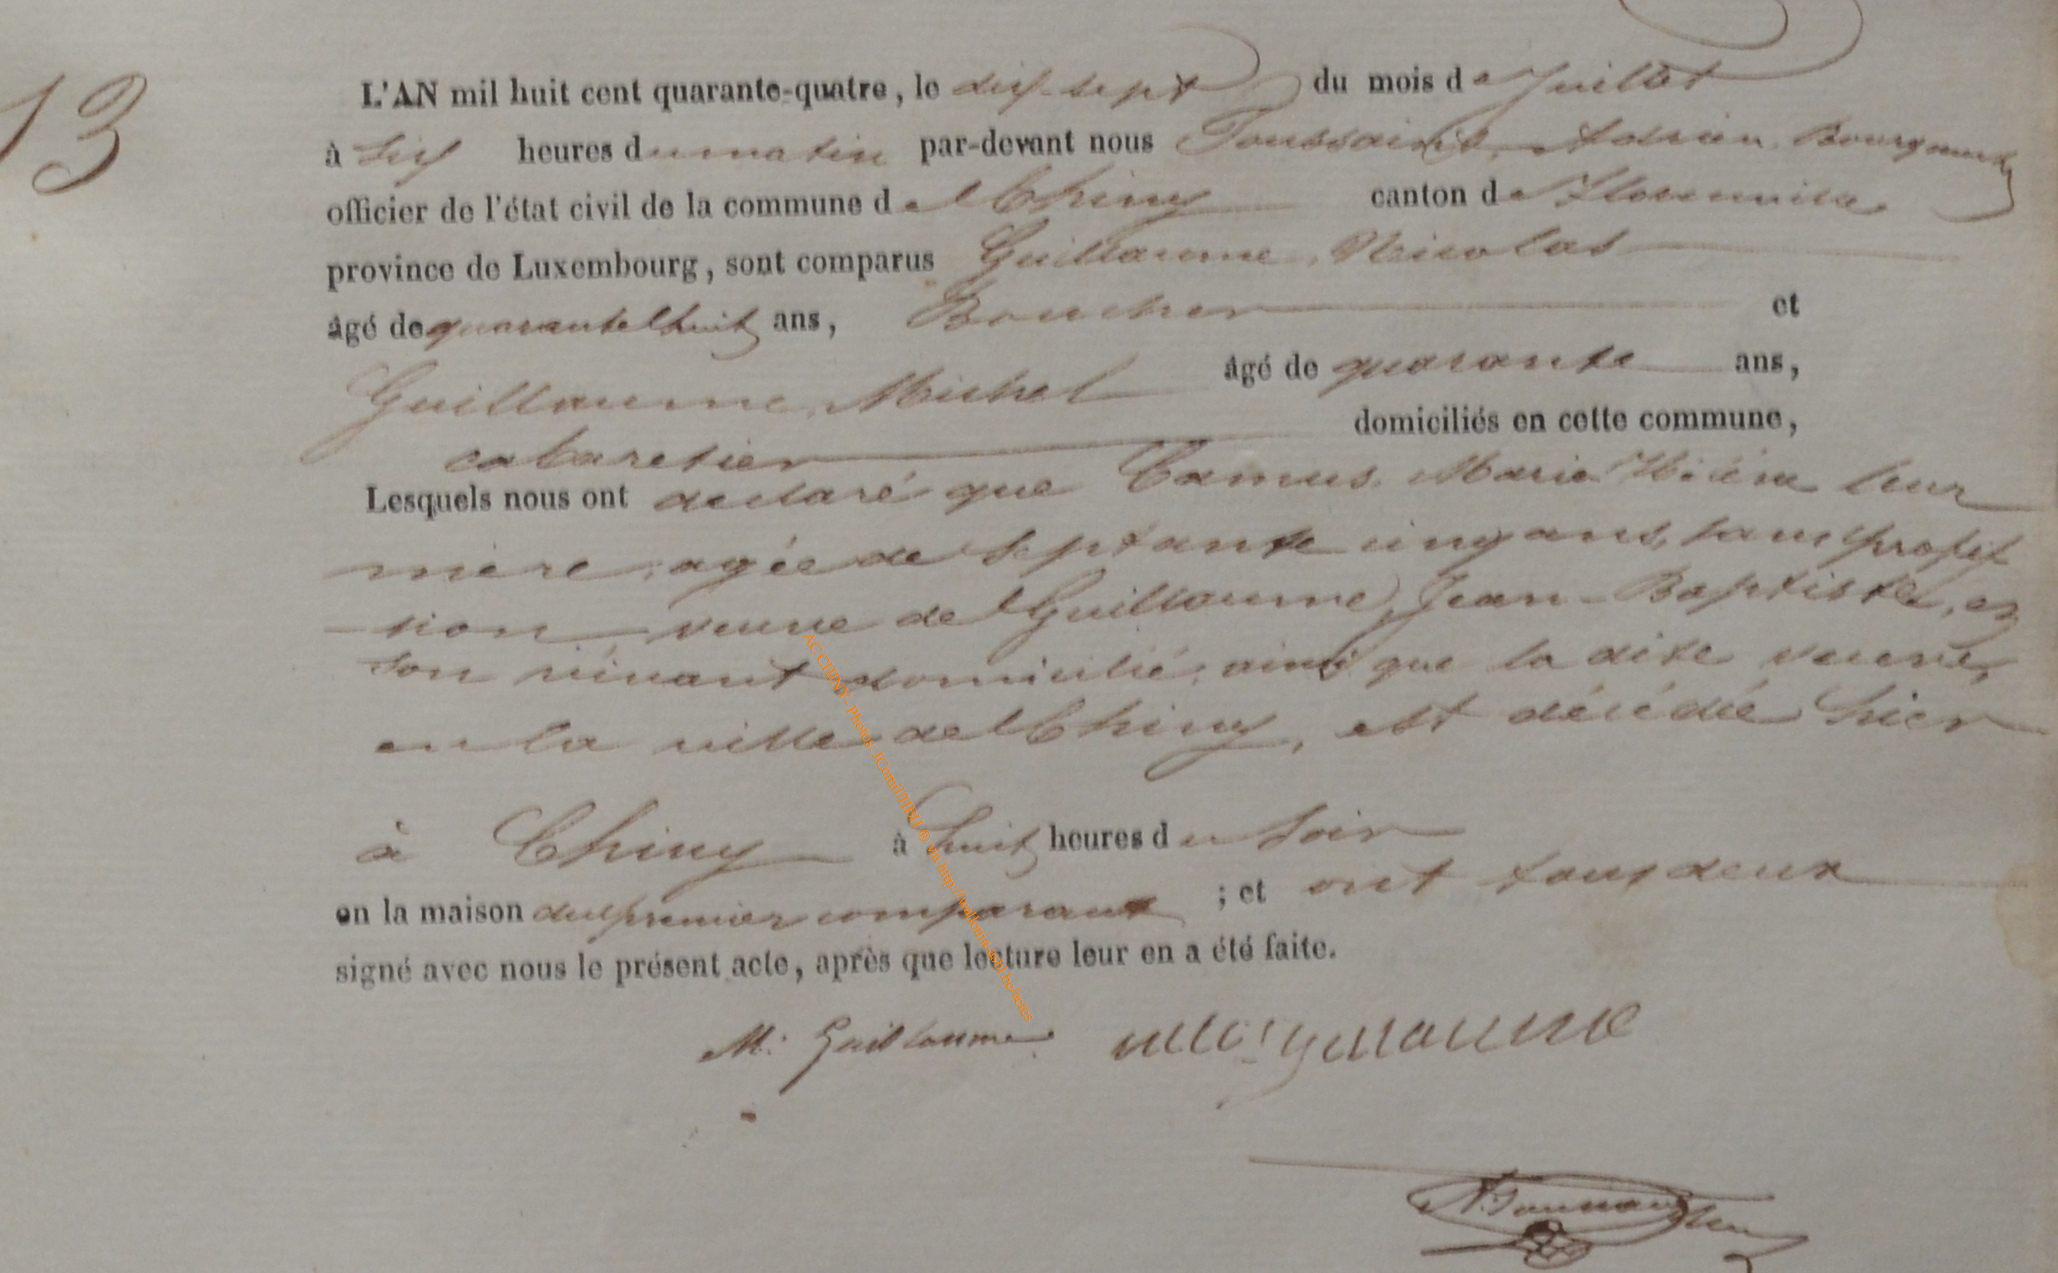 13
L'AN mil huit cent quarante-quatre, le dix-sept du mois de Juillet
à six heures du matin par-devant nous Toussaint, Adrien
officier de l'état civil de la commune de Chiny canton de Florenville
province de Luxembourg, sont comparus Guillaume, Nicolas
âgé de quarante huit ans, Boucher et
Guillaume, Michel âgé de quarante ans,
cabaretier domiciliés en cette commune,
Lesquels nous ont declaré que Camus Marie leur
mère, agée de septante cinq ans, sans profes
sion veuve de Guillaume, Jean-Baptiste, en
son vivant domicilié, ainsi que la dite veuve,
en la ville de Chiny, est décédée hier
à Chiny à huit heures du soir
en la maison du premier comparant ; et ont tous deux
signé avec nous le présent acte, après que lecture leur en a été faite.
M. Guillaume guillaume